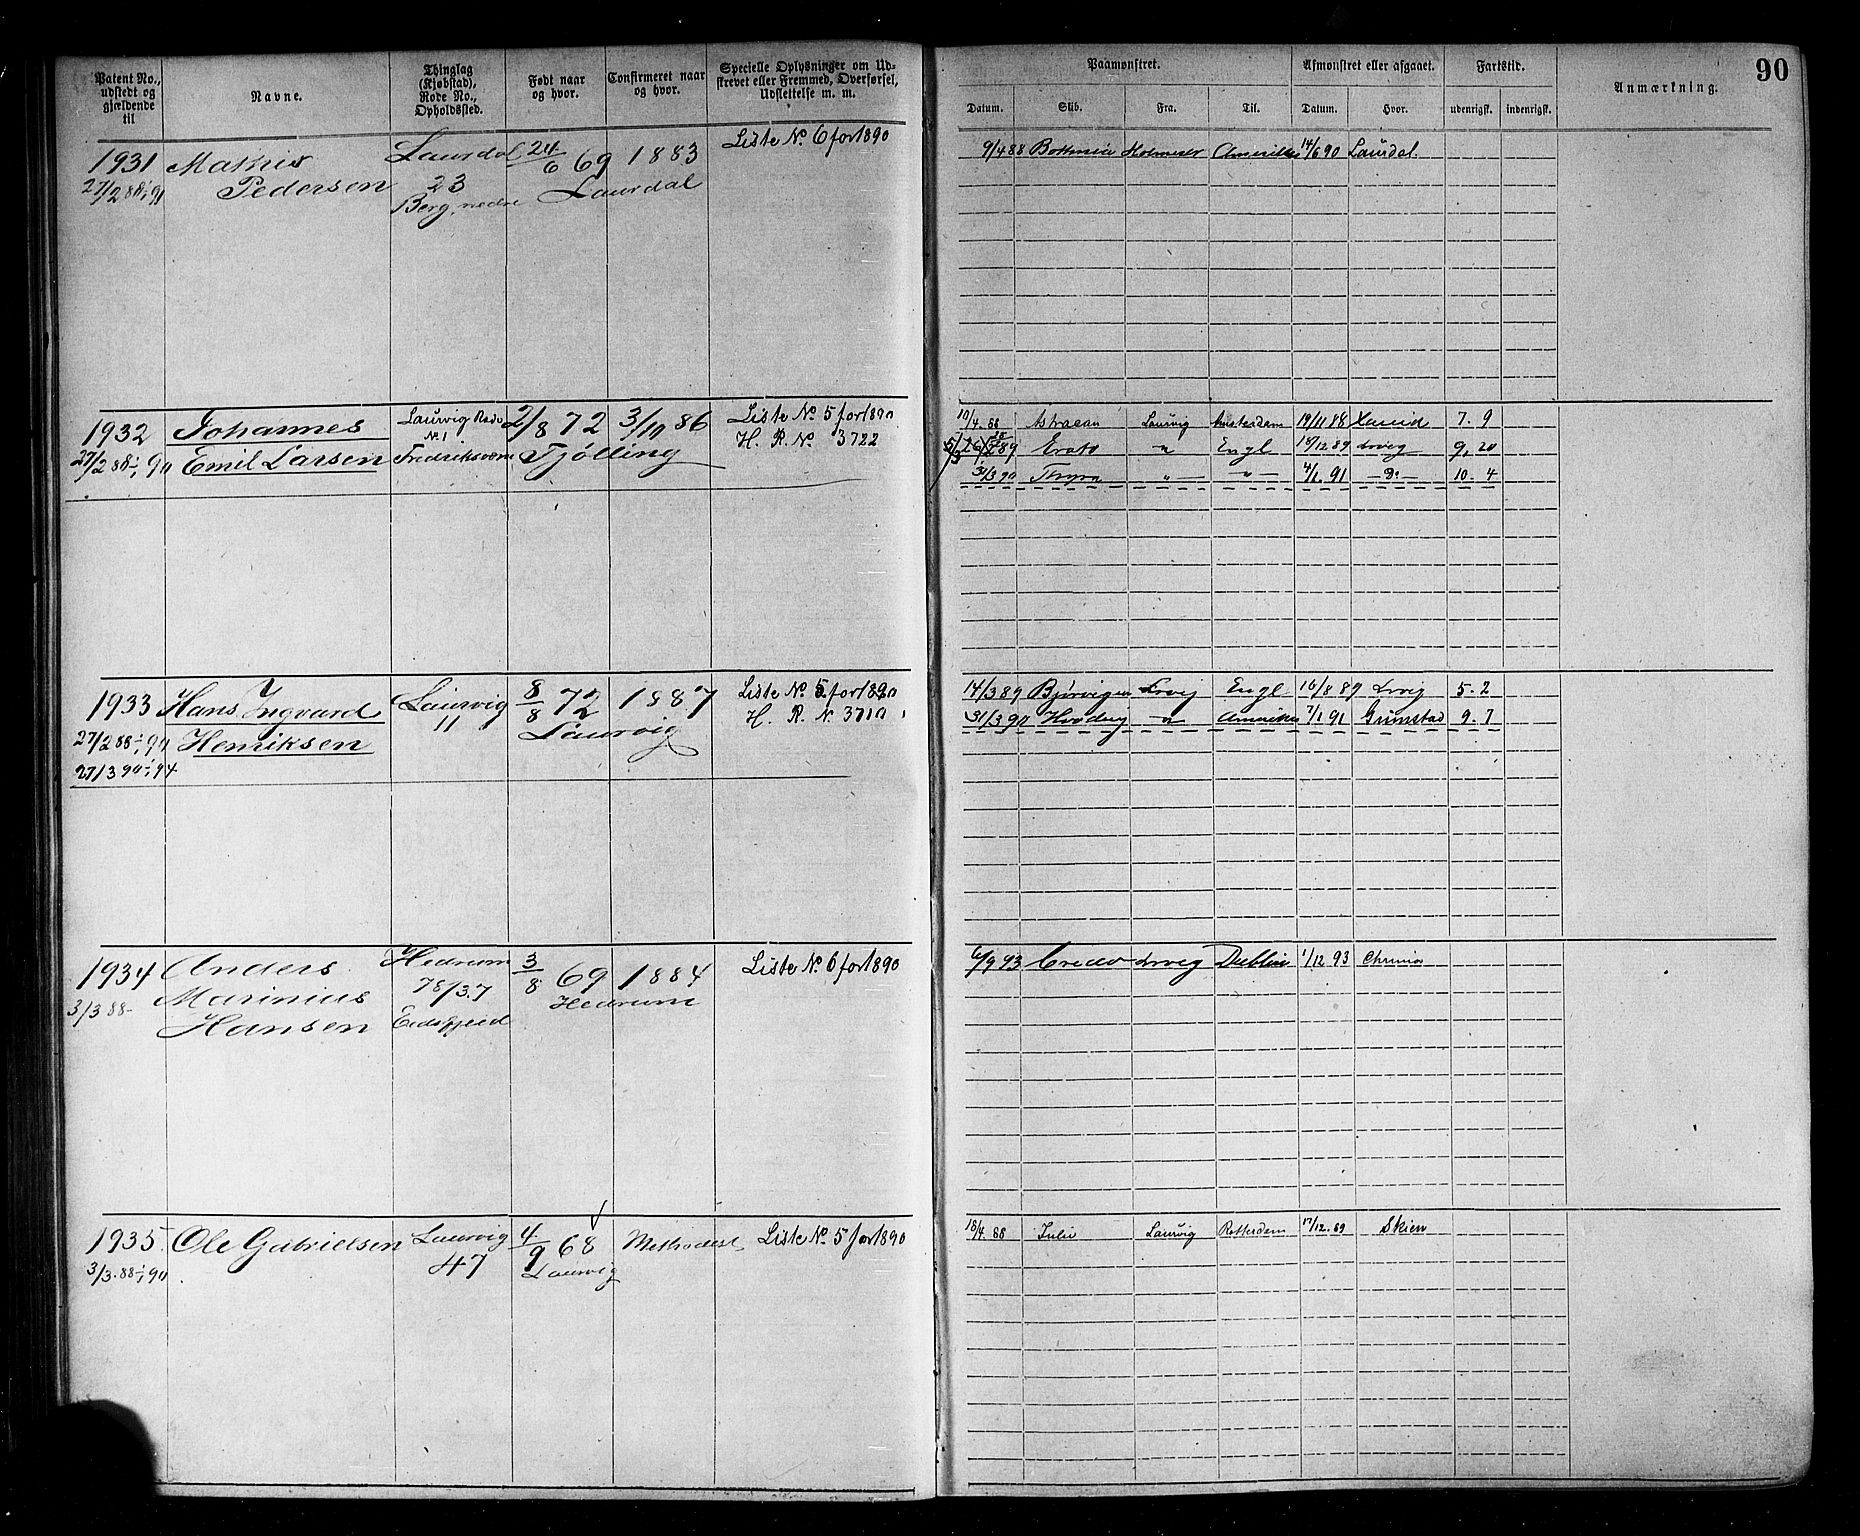 90
Patent No., udstedt og gjældende til
Navne.
Thinglag (Kjøbstad), Rode No., Opholdssted.
Født naar og hvor.
Confirmeret naar og hvor.
Specielle Oplysninger om Udskrevet eller Fremmed, Overførsel, Udslettelse m. m.
Paamønstret.
Afmønstret eller afgaaet.
Fartstid.
Anmærkning.
Datum. Skib. Fra. Til. Datum. Hvor. udenrigsk. indenrigsk.
1931 Mathis Laurdal 24/6 69 1883 Liste No. 6 for 1890 9/4 88 14/6 90 Laurdal.
27/2 88 Pedersen 23 Laurdal
Berg, nedre
1932 Johannes Laurvig Rode 2/8 72 3/10 86 Liste No. 5 for 1890 10/4 88 Astræan Laurvig Amsterdam 19/11 88 7. 9
No. 1 H. R. No 3722
27/2 88 Emil Larsen Fredriksværn Tjølling Erato " Engl 18/12 89 Lrvig 9, 20
31/3 90 Thyra " " 4/2 91 Do 10. 4
1933 Hans Ingvard Laurvig 8/8 72 1887 Liste No. 5 for 1890 14/3 89 Bjørvigen Lrvig Engl 16/8 89 Lrvig 5. 2
11 H. R. No. 3710 31/3 90 " Amerika 7/1 91 Grimstad 9. 7
27/2 88 Henriksen Laurvig
27/3 90 94
1934 Anders Hedrum 3/8 69 1884 Liste No. 6 for 1890 6/9 93 Credo Lrvig Dublin 1/12 93 Chrnia
3/3 88 Marinius 78/37 Hedrum
Hansen
1935 Ole Gabrielsen Laurvig 4/9 68 Methodist Liste No. 5 for 1890 18/4 88 Julie Laurvig Rotterdam 17/12 89 Skien
3/3 88 47 Laurvig